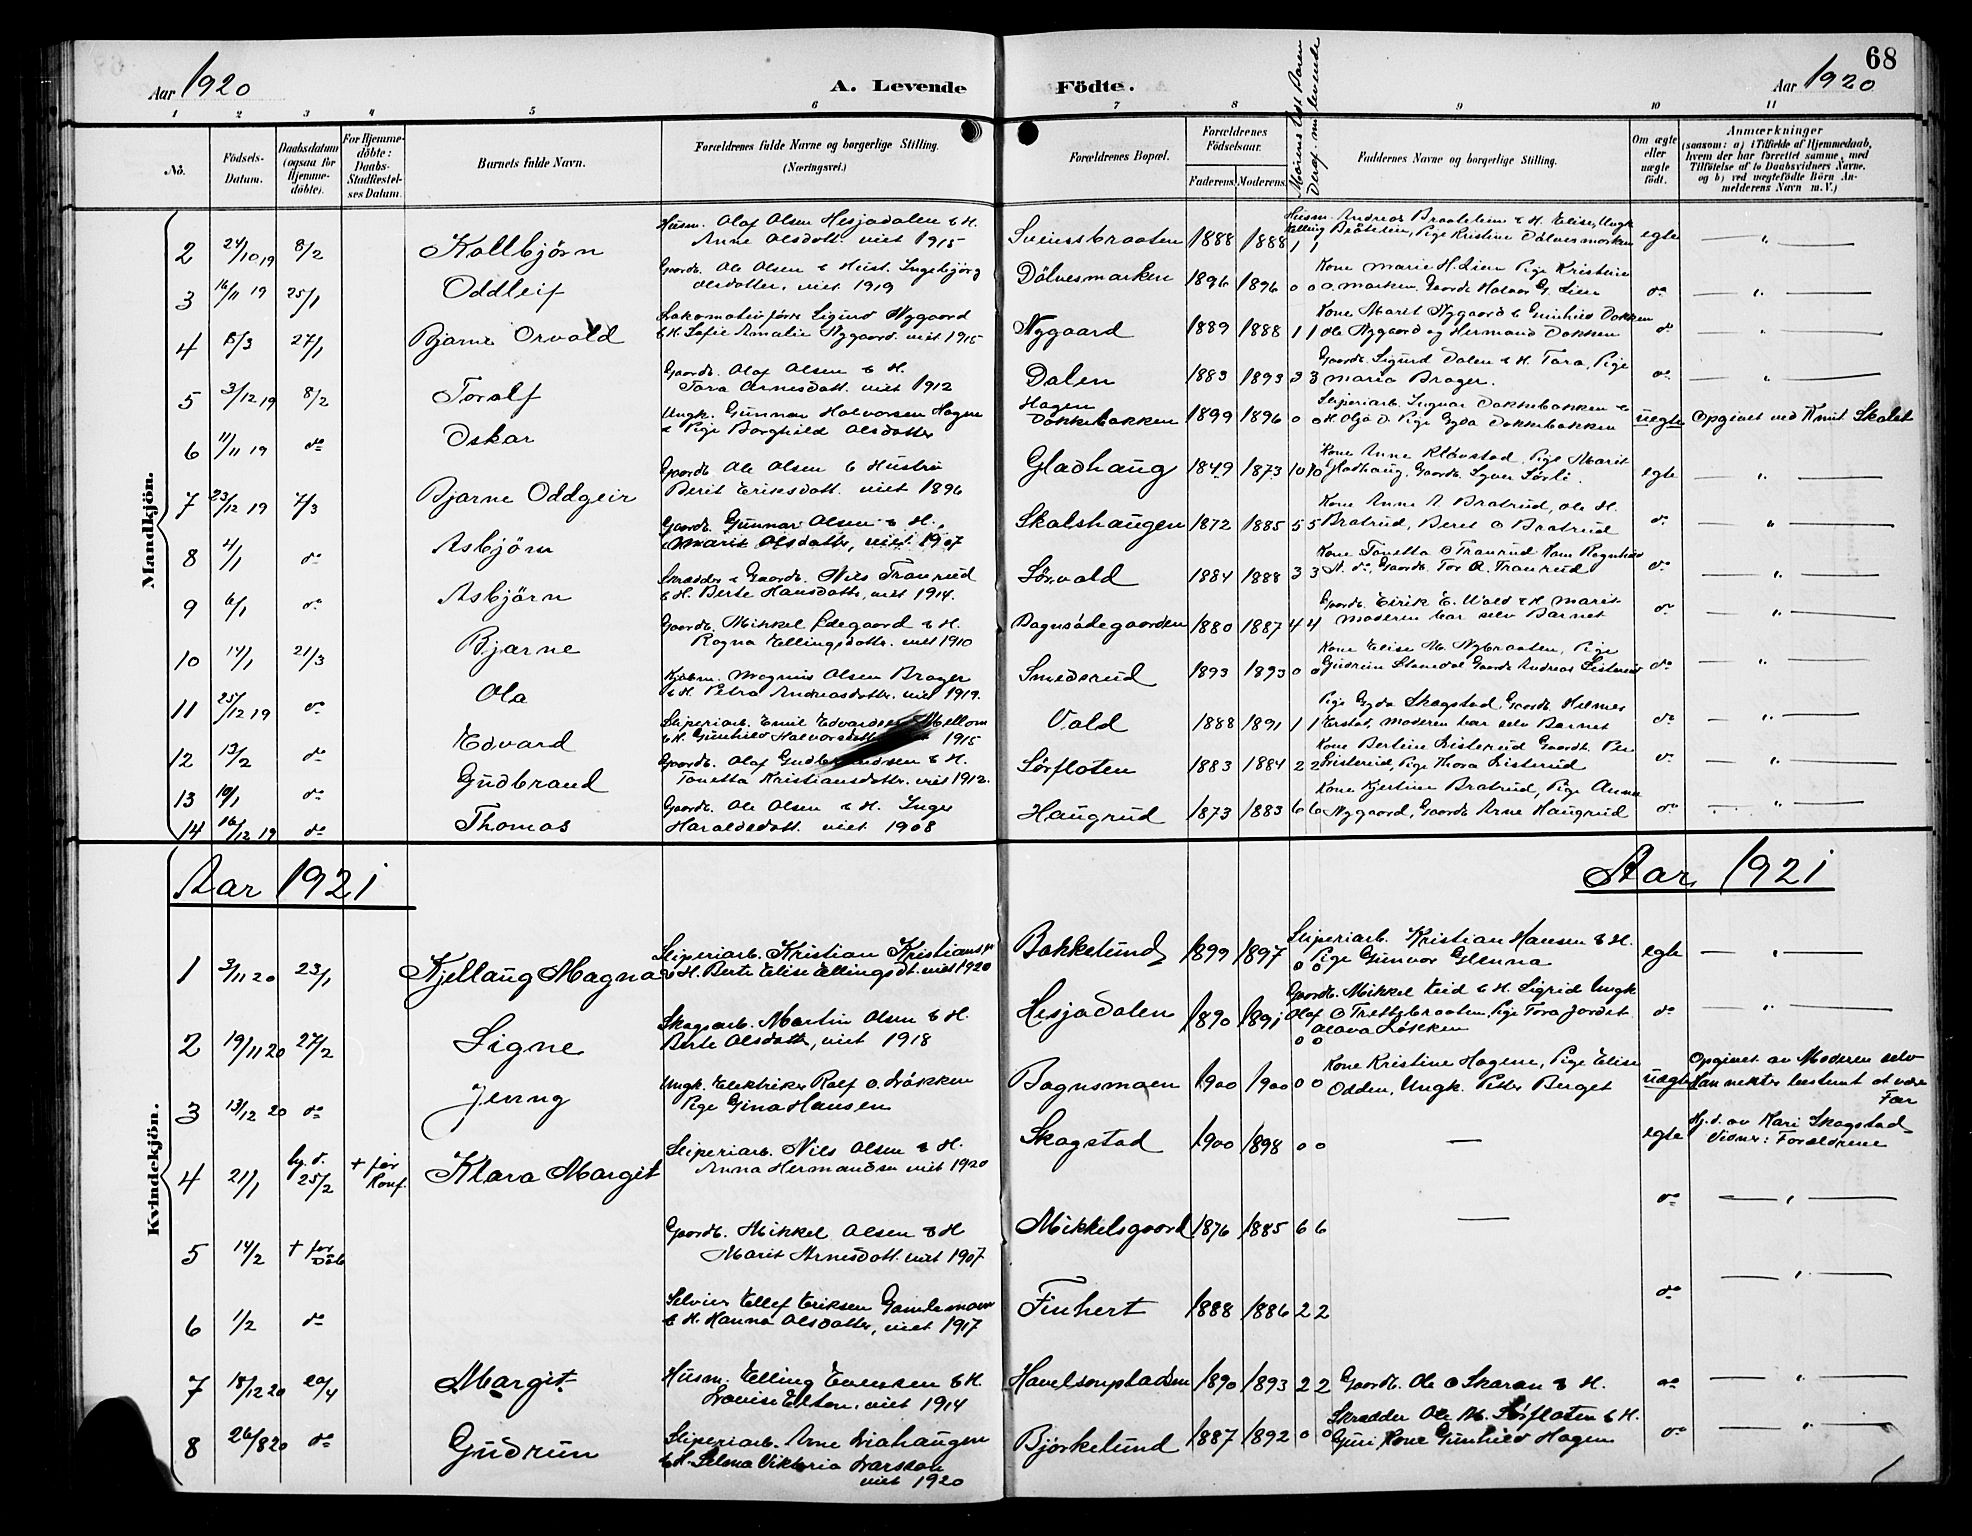 68
Aar 1920 A. Levende Fødte. Aar 1920
1 2 3 4 5 6 7 8 9 10 11
No. Födsels-Datum. Daabsdatum (ogsaa for Hjemmedöbte). For Hjemmedöbte: Daabs-Stadfæstelses Datum. Barnets fulde Navn. Forældrenes fulde Navne og borgerlige Stilling. (Næringsvei.) Forældrenes Bopæl. Forældrenes Födselsaar. Faderens. Moderens. Faddernes Navne og borgerlige Stilling. Om ægte eller uægte födt. Anmærkninger (saasom: a) i Tilfælde af Hjemmedaab, hvem der har forrettet samme, med Tilföielse af to Daabsvidners Navne, og b) ved uægtefödte Börn Anmelderens Navn m. V.)
Mandkjön.
2 24/10 19 8/2 Kollbjörn Husm. Olaf Olsen Hesjadalen & H. Anne Olsdatt. viet 1915 Sveinsbraaten 1888 1888 1 1 Husm. Andreas Braateien & H. Elise, Ungk. Elling Bråteien, Pige Kristine Dölvesmarken egte — „ —
3 16/11 19 25/1 Oddleif Gaardb. Ole Olsen & Hust. Ingebjörg Olsdatter, viet 1919 Dölvesmarken 1896 1896 0 0 Kone Marie H. Lien Pige Kristine O. Marken. Gaardb. Halvor G. Lien do — „ —
4 8/3 27/1 Bjarne Orvald Lokomotivförer Sigurd Nygaard & H. Sofie Amalie Nygaard. viet 1915 Nygaard 1889 1888 1 1 Kone Marit Nygaard & Gunhild Dokken Ole Nygaard og Hermand Dokken do — „ —
5 3/12 19 8/2 Toralf Gaardb. Olaf Olsen & H. Tora Arnesdatt. viet 1912 Dalen 1883 1893 3 3 Gaardb. Sigurd Dalen & H. Tora, Pige Maria Brager. do — „ —
6 11/11 19 do Oskar Ungk. Gunnar Halvorsen Hagen & Pige Borghild Olsdatter Hagen Dokkebakken 1899 1896 0 0 Sliperiarb. Ingvar Dokkebakken & H. Olja D. Pige Gyda Dokkebakken uegte Opgivet ved Knut Skalet
7 23/12 19 7/3 Bjarne Oddgeir Gaardb. Ole Olsen & Hustru Berit Eriksdatt. viet 1896 Gladhaug 1849 1873 10 10 Kone Anne Klövstad, Pige Marit Gladhaug. Gaardb. Syver Sörli. egte — „ —
8 4/1 do Asbjörn Gaardb. Gunnar Olsen & H. Marit Olsdatter, viet 1907 Skalshaugen 1872 1885 5 5 Kone Anne A Bratrud, Ole H. Bratrud, Beret O Bratrud do — „ —
9 6/1 do Asbjörn Skrædder & Gaardb. Nils Tranrud & H. Berte Hansdatter, viet 1914. Sörvald 1884 1888 3 3 Kone Tonetta O Tranrud Kone Ragnhild N. do, Gaardb. Tor A. Tranrud do — „ —
10 14/1 21/3 Bjarne Gaardb. Mikkel Ödegaard & H. Ragna Ellingsdatter. viet 1910 Bagnsödegaarden 1880 1887 4 4 Gaardb. Eirik E. Wold & H. Marit Moderen bar selv Barnet do — „ —
11 25/12 19 do Ola Kjöbm. Magnus Olsen Brager & H. Petra Andreasdatter. viet 1919. Smederud 1893 1893 0 0 Kone Elise M. Nybraaten, Pige Gudrun Stavedal Gaardb. Andreas Listerud do — „ —
12 13/2 do Edvard Sliperiarb. Emil Edvardsen Mellom & H. Gunhild Halvorsdatt 1915 Vold 1888 1891 1 1 Pige Gyda Skagstad, Gaardb. Helmer Erstad, Moderen bar selv Barnet do — „ —
13 10/1 do Gudbrand Gaardb. Olaf Gudbrandsen & H. Tonetta Kristiansdatter. viet 1912. Sörfloten 1883 1884 2 2 Kone Bertine Listerud Gaardb. Per Listerud, Pige Thora Listerud do — „ —
14 16/12 19 do Thomas Gaardb. Ole Olsen & H. Inger Haraldsdatt. viet 1908 Haugrud 1873 1883 6 6 Kone Kjestine Bratrud, Pige Anna Nygaard, Gaardb. Arne Haugrud do — „ —
Aar 1921 Aar 1921
Kvindekjön.
1 3/11 20 23/1 Kjellaug Magna Sliperiarb. Kristian Kristians. & H. Berte Elise Ellingsdt. viet 1920 Bakkelund 1899 1897 0 0 Sliperiarb. Kristian Hansen & H. Pige Gunvor Glenna egte — „ —
2 19/11 20 27/2 Signe Skogsarb. Martin Olsen & H. Berte Olsdatt, viet 1918 Hesjadalen 1890 1891 0 0 Gaardb. Mikkel Eeid & H. Sigrid Ungk Olaf O Trettebraaten, Pige Tora Jordet Olava Lökken do — „ —
3 13/12 20 do Jenny Ungk. Elektriker Rolf O. Lökken Pige Gina Hansen Bagnsmoen 1900 1900 0 0 Kone Kristine Hagene, Pige Elise Odden, Ungk. Petter Berget uegte Opgivet av Moderen selv Han nekter bestemt at være Far
4 21/1 hj. d. 25/2 + før Konf. Klara Margit Sliperiarb. Nils Olsen & H. Anna Hermandsen viet 1920 Skagstad 1900 1898 0 0 — egte Hj. d. av Mari Skagstad Vidner: Forældrene
5 14/2 + før Daab Gaardb. Mikkel Olsen & H Marit Arnesdatt. viet 1907 Mikkelsgaard 1876 1885 6 6 — do — „ —
6 1/2 do Selveier Ellef Eriksen Gamlemoen & H. Hanna Olsdatter, viet 1917 Finhert 1888 1886 2 2 do — „ —
7 18/12 20 20/4 Margit Husm. Elling Evensen & H. Lovise Elton, viet 1914 Havelsenpladsen 1890 1893 2 2 Gaardb. Ole O Skaran & H. do — „ —
8 26/8 20 do Gudrun Sliperiarb. Arne Liahaugen & H. Selma Viktoria Larsson viet 1920 Björkelund 1887 1892 0 0 Skrædder Ole M. Sörfloten & H. Guri Kone Gunhild Hagen do — „ —